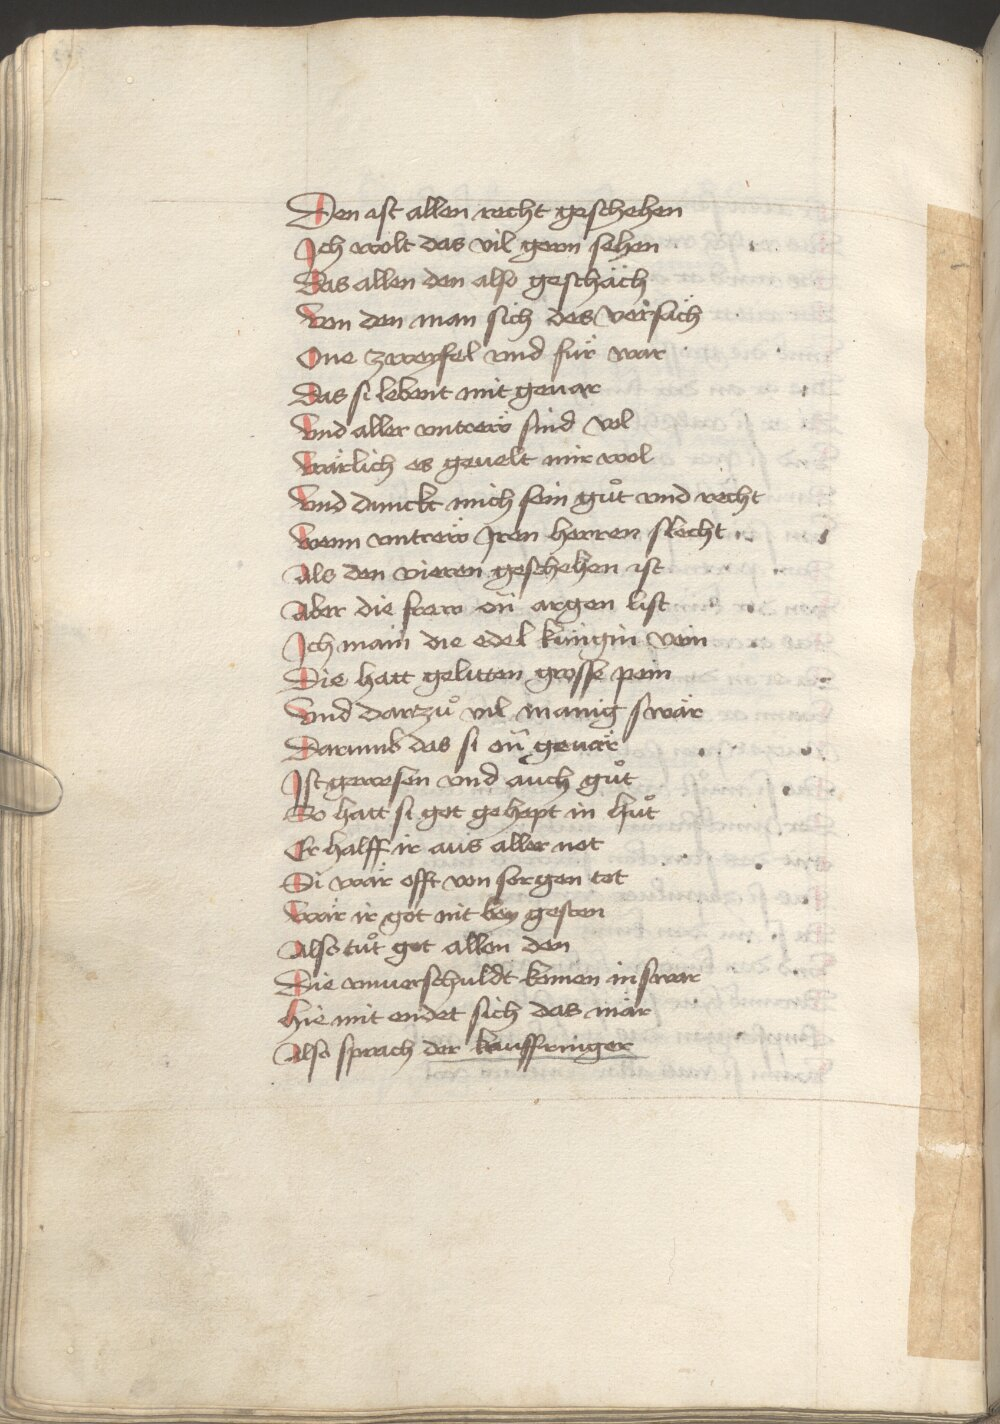 Den ist allen recht geschehen
Ich wolt das vil gern sehen
Das allen den also geschäch
Von den man sich des versäch
One zweyfel vnd für war
Das si lebent mit gevar
Vnd aller vntrew sind vol
Wärlich es geuelt mir wol
Vnd dunckt mich sein guͦt vnd recht
Wenn vntrew Iren herren slecht
Als den vieren geschehen ist
Aber die frow on argen list
Ich main die edel küngin vein
Die hatt gelitten grosse pein
Vnd dartzuͦ vil manig swär
Darumb das si on geuär
Ist gewesen vnd auch guͦt
So hatt si got gehept in huͦt
Er halff ir aus aller not
Si wär offt von sorgen tot
Wär ir got nit bey gesten
Also tuͦt got allen den
Die vnuerschuldt komen in swär
Hie mit endet sich das mär
Also sprach der kauffringer